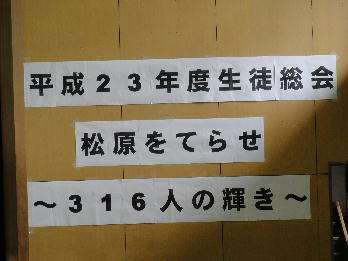 平成２３年度生徒総会
松原をてらせ
～３１６人の輝き～